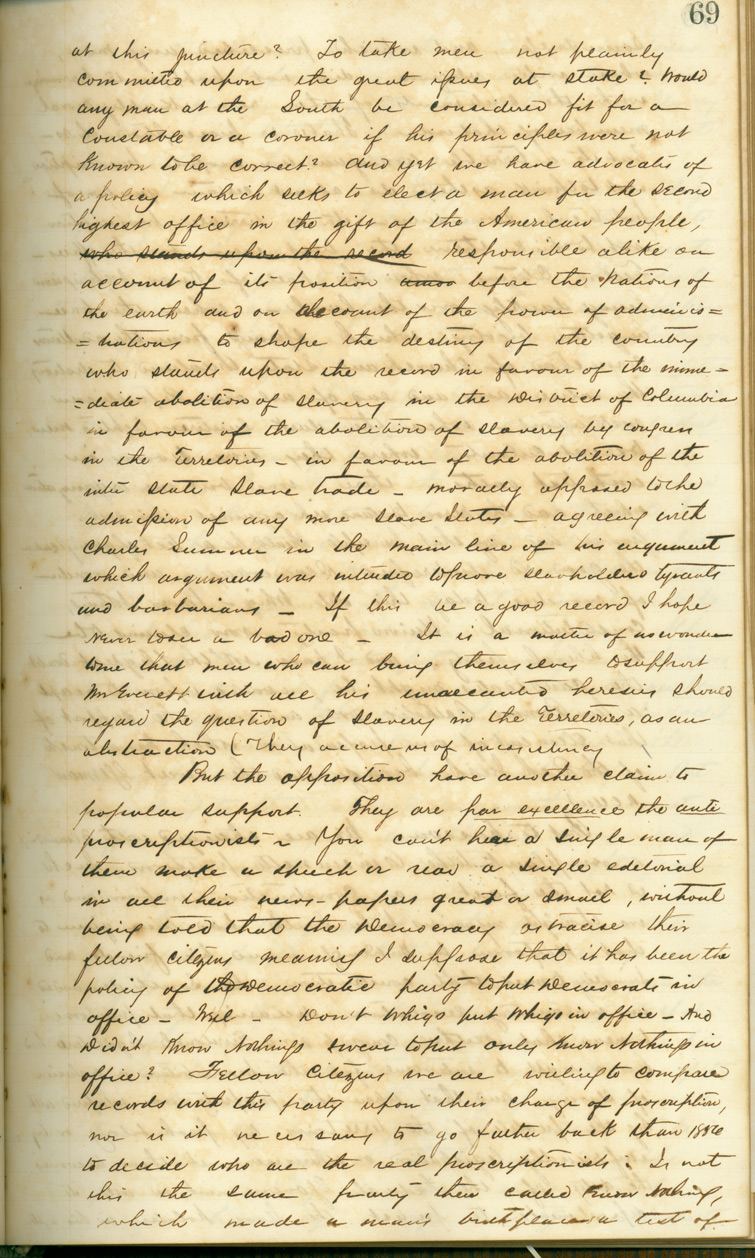 69
at this juncture? To take men not plainly
committed upon the great issues at stake? Would
any man at the South be considered fit for a
Constable or a coroner if his principles were not
known to be correct? And yet we have advocates of
a policy which seeks to elect a man for the second
highest office in the gift of the American people,
who stands upon the record responsible alike on
account of its position before the Nations of
the earth and on account of the power of adminis=
=trations to shape the destiny of the country
who stands upon the record in favour of the imme=
=diate abolition of slavery in the District of Columbia
in favour of the abolition of slavery by congress
in the Territories – in favour of the abolition of the
inter state slave trade – morally opposed to the
admission of any more slave States – agreeing with
Charles Sumner in the main line of his argument
which argument was intended to prove slaveholders tyrants
and barbarians – If this be a good record I hope
never to see a bad one – It is a matter of no wonder
to me that men who can bring themselves to support
Mr Everett with all his unrecanted heresies should
regard the question of slavery in the Territories, as an
abstraction (They accuse us of inconsistency
But the opposition have another claim to
popular support. They are par excellence the anti
proscriptionists – You can't hear a single man of
them make a speech or read a single editorial
in all their news-papers great or small, without
being told that the Democracy ostracise their
fellow citizens meaning I suppose that it has been the
policy of the Democratic party to put Democrats in
office – Well – Don't Whigs put Whigs in office – And
Didn't Know Nothings swear to put only Know Nothings in
office? Fellow Citizens we are willing to compare
records with this party upon their charge of proscription,
nor is it necessary to go further back than 1856
to decide who are the real proscriptionists: Is not
this the same party then called Know Nothing,
which made a man's birthplace a test of